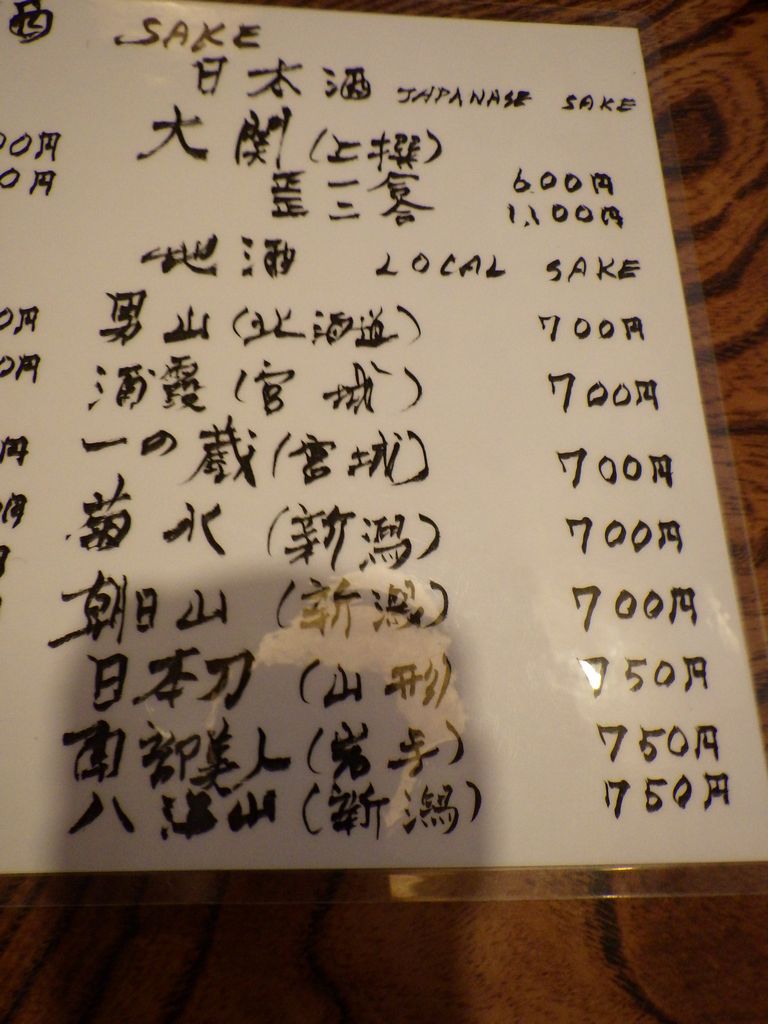 酒 SAKE
日本酒 JAPANASE SAKE
大関(上撰)
正一合 600円
正二合 1,100円
地酒 LOCAL SAKE
男山(北海道) 700円
浦霞(宮城) 700円
一の蔵(宮城) 700円
菊水(新潟) 700円
朝日山(新潟) 700円
日本刀(山形) 750円
南部美人(岩手) 750円
八海山(新潟) 750円
00円
0円
0円
0円
円
0円